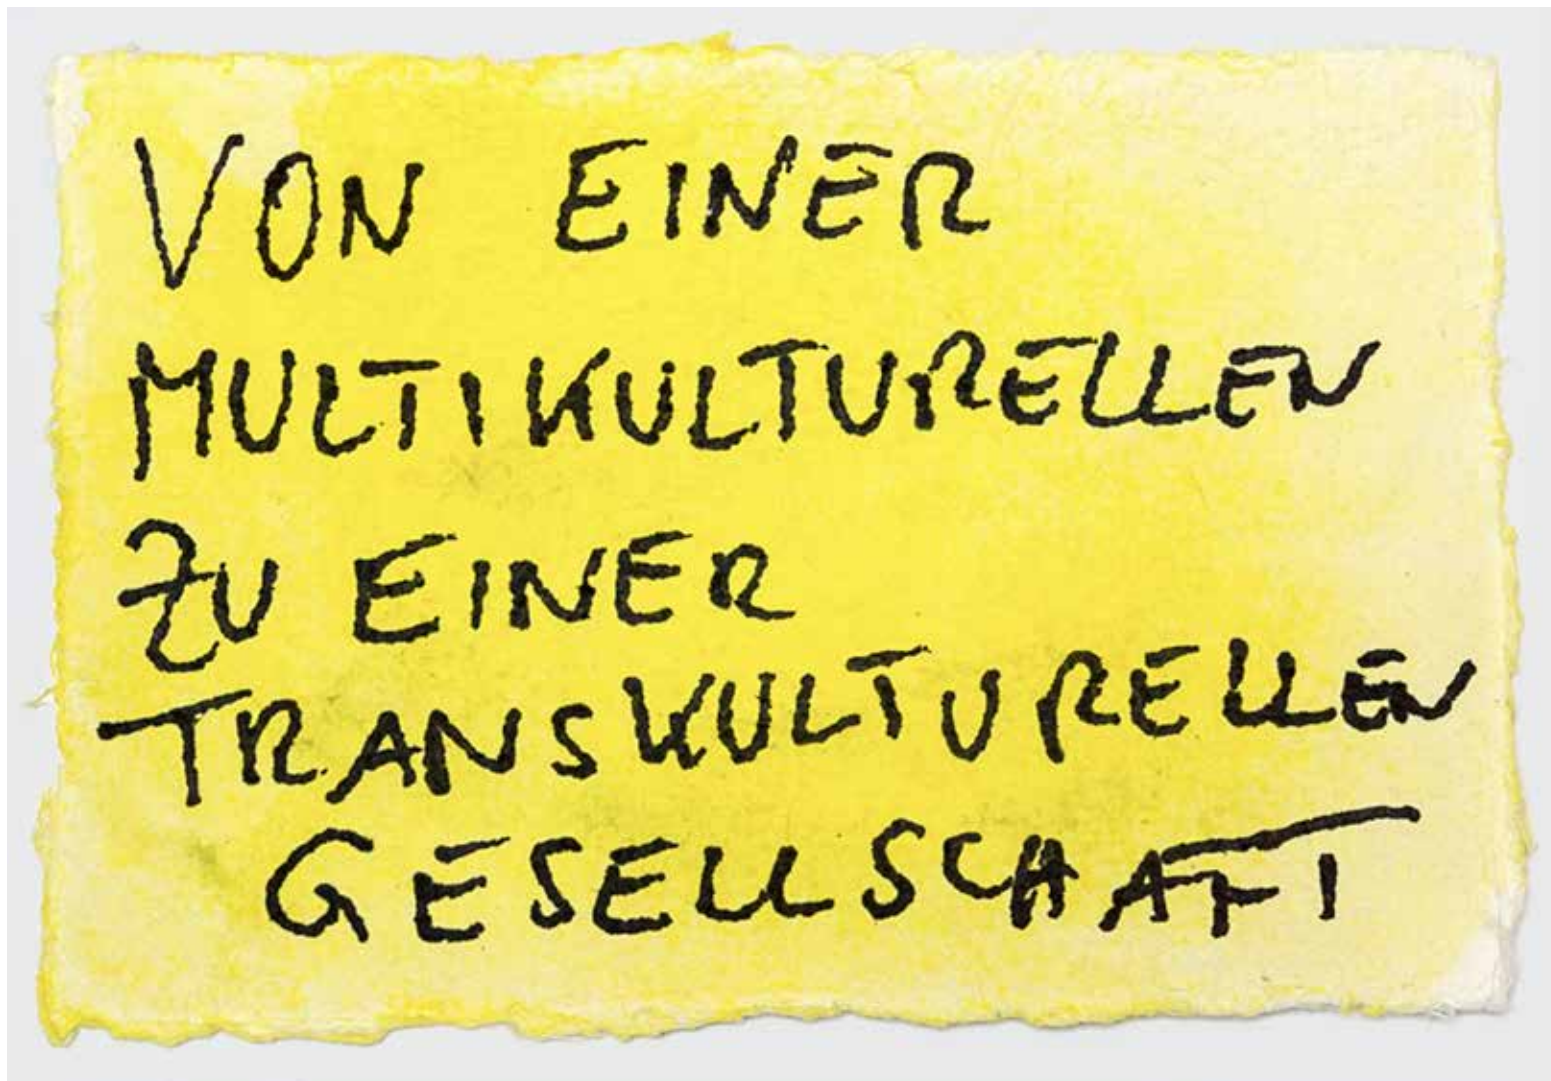 VON EINER
MULTIKULTURELLEN
ZU EINER
TRANSKULTURELLEN
GESELLSCHAFT